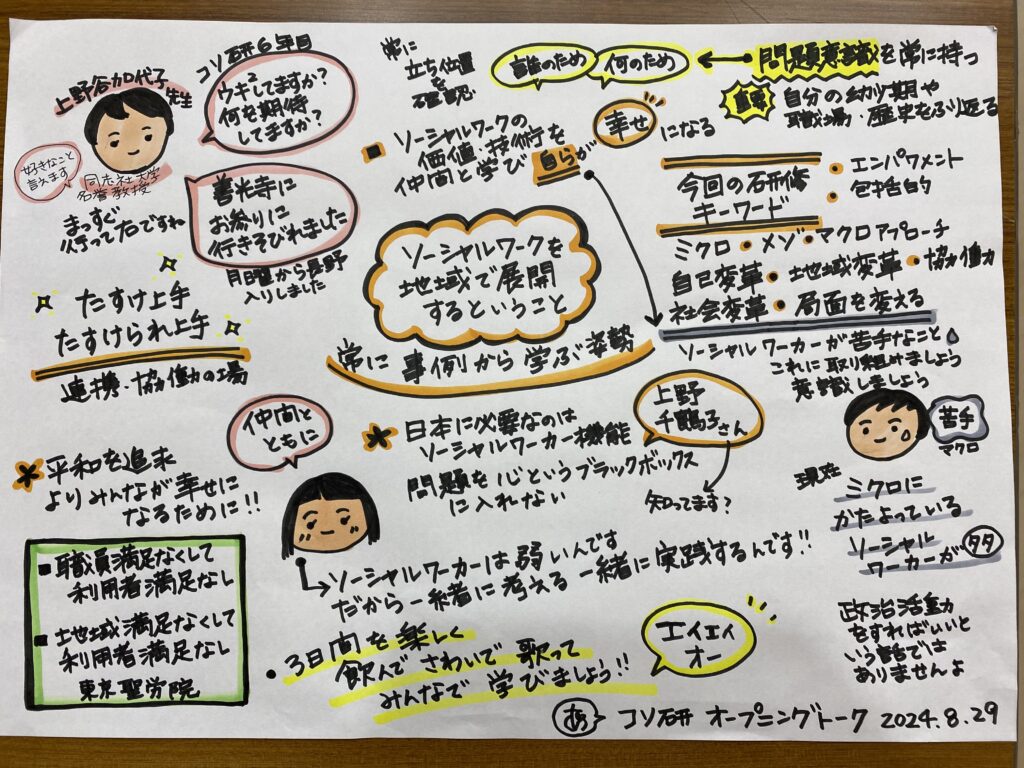 コソ研6年目
上野谷加代子先生
ウキ²してますか?
何を期待
してますか?
好きなこと
言えます
同志社大学
名誉教授
まっすぐ
行って右ですね
善光寺に
お参りに
行きそびれました
月日曜から長野
入りしました
たすけ上手
たすけられ上手
連携・協働の場
常に
立ち位置
を
確認
誰のため
何のため
問題意識を常に持つ
重要
自分の幼少期や
職場・歴史をふり返る
ソーシャルワークの
価値・技術を
仲間と学び 自らが
幸せになる
ソーシャルワークを
地域で展開
するということ
常に事例から学ぶ姿勢
今回の研修
キーワード
・エンパワメント
・包括的
ミクロ・メゾ・マクロアプローチ
自己変革・地域変革・協働
社会変革・局面を変える
ソーシャルワーカーが苦手なこと
これに取り組みましょう
意識しましょう
苦手
マクロ
現在
ミクロに
かたよっている
ソーシャル
ワーカーが多
政治活動
をすればいいと
いう話では
ありませんよ
仲間と
ともに
平和を追求
よりみんなが幸せに
なるために!!
日本に必要なのは
ソーシャルワーカー機能
問題を心というブラックボックス
に入れない
上野
千鶴子さん
知ってます?
ソーシャルワーカーは弱いんです
だから一緒に考える一緒に実践するんです!!
職員満足なくして
利用者満足なし
地域満足なくして
利用者満足なし
東京聖労院
・3日間を楽しく
飲んでさわいで歌って
みんなで学びましょう!!
エイエイ
オー
あ コソ研 オープニングトーク 2024.8.29